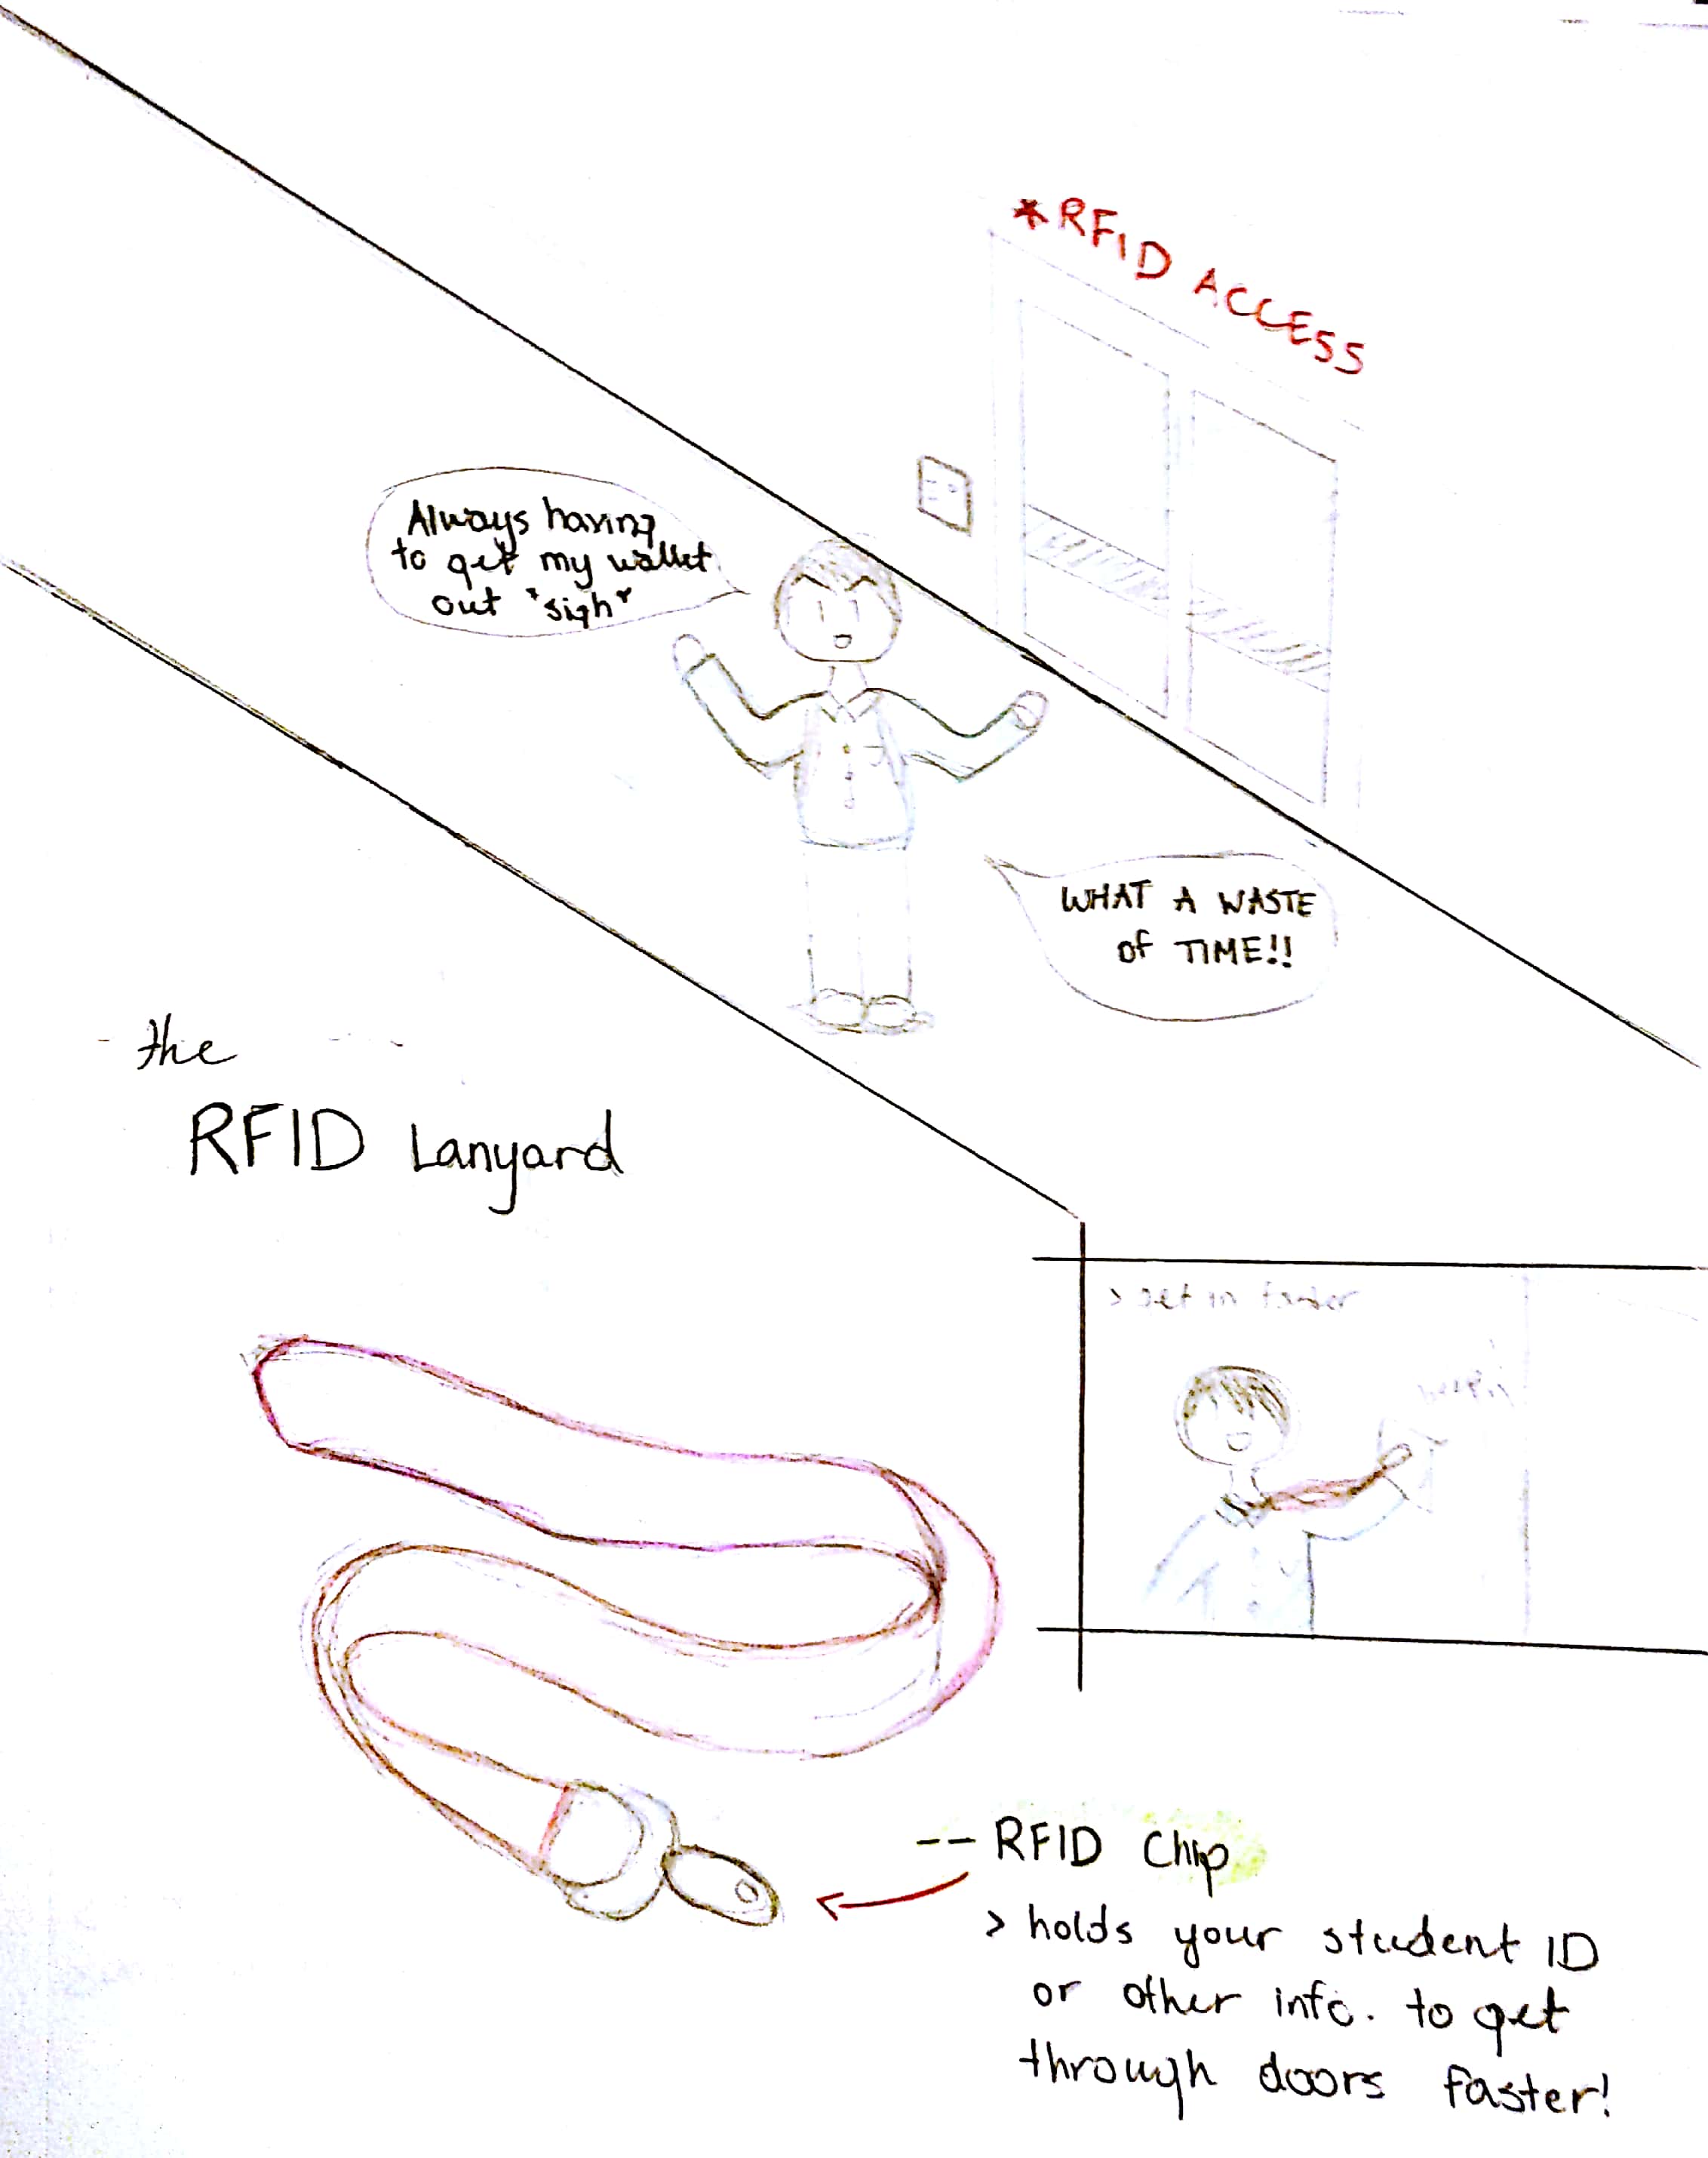 *RFID ACCESS
Always having
to get my wallet
out *sigh*
WHAT A WASTE
of TIME!!
the
RFID Lanyard
> get in faster
-- RFID Chip
> holds your student ID
or other info. to get
through doors faster!